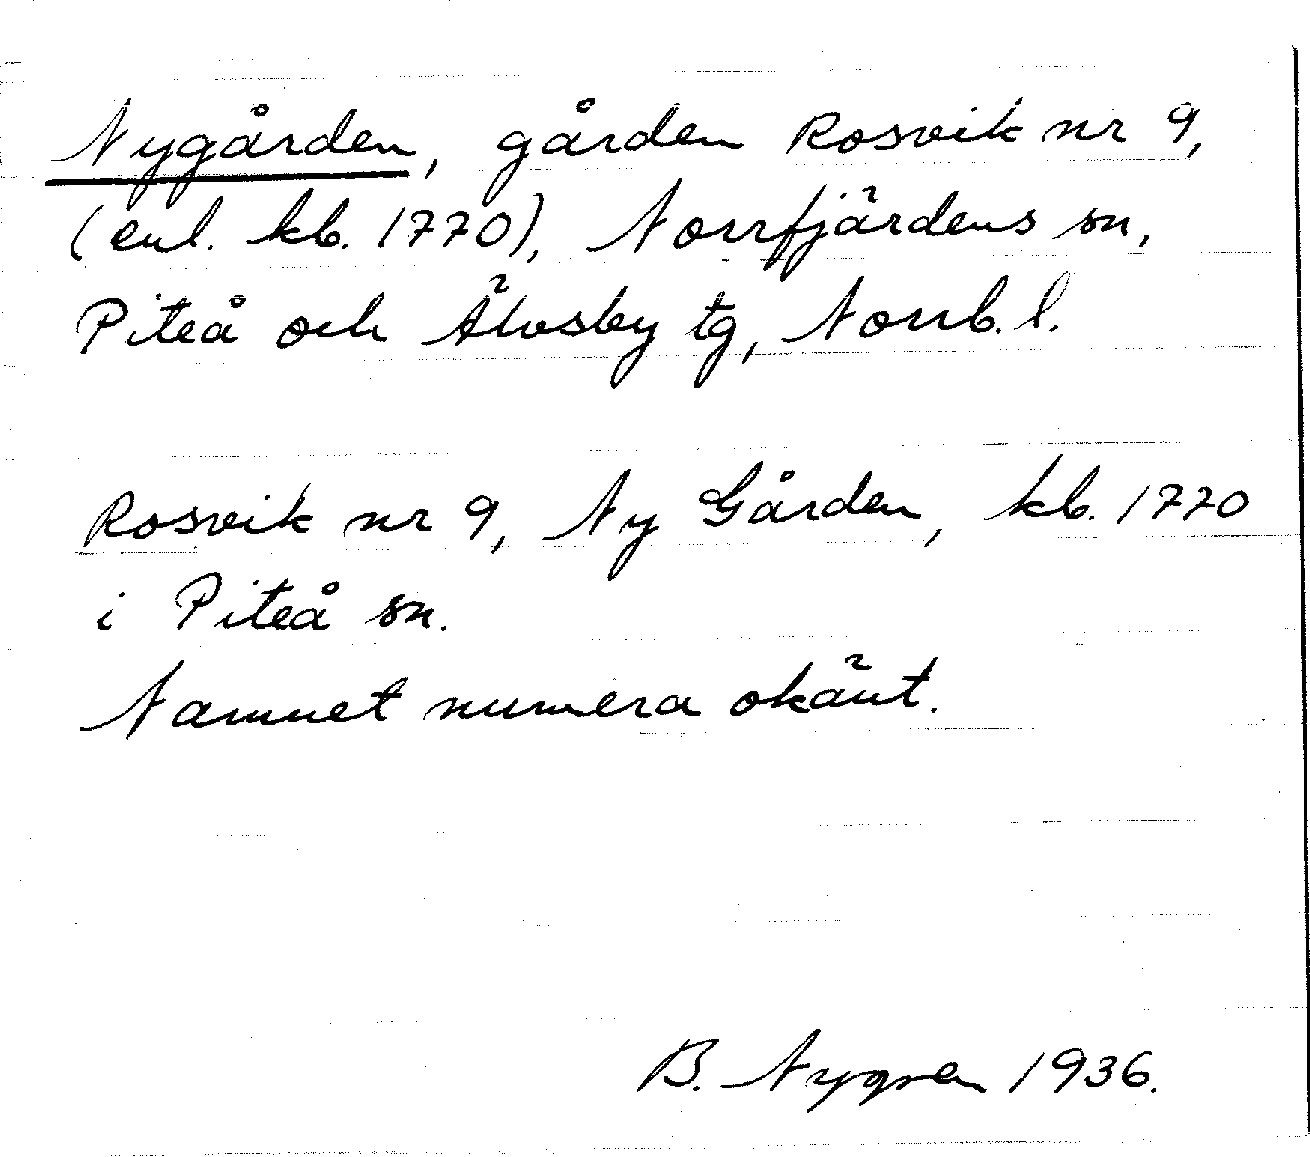 Nygården, gården Rosvik nr 9,
(enl. kb. 1770), Norrfjärdens sn,
Piteå och Älvsby tg, Norrb. l.
Rosvik nr 9, Ny Gården, kb. 1770
i Piteå sn.
Namnet numera okänt.
B. Nygren 1936.